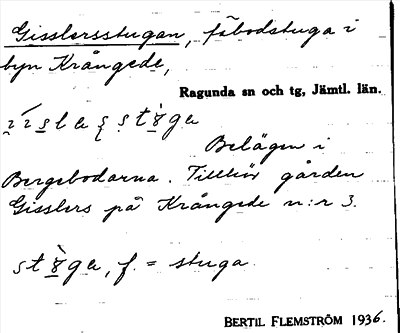 Gisslersstugan, fäbodstuga i
byn Krångede,
Ragunda sn och tg, Jämtl. län.
Belägen i
Bergebodarna. Tillhör gården
Gisslers på Krångede n:r 3.
f. = stuga.
BERTIL FLEMSTRÖM 1936.